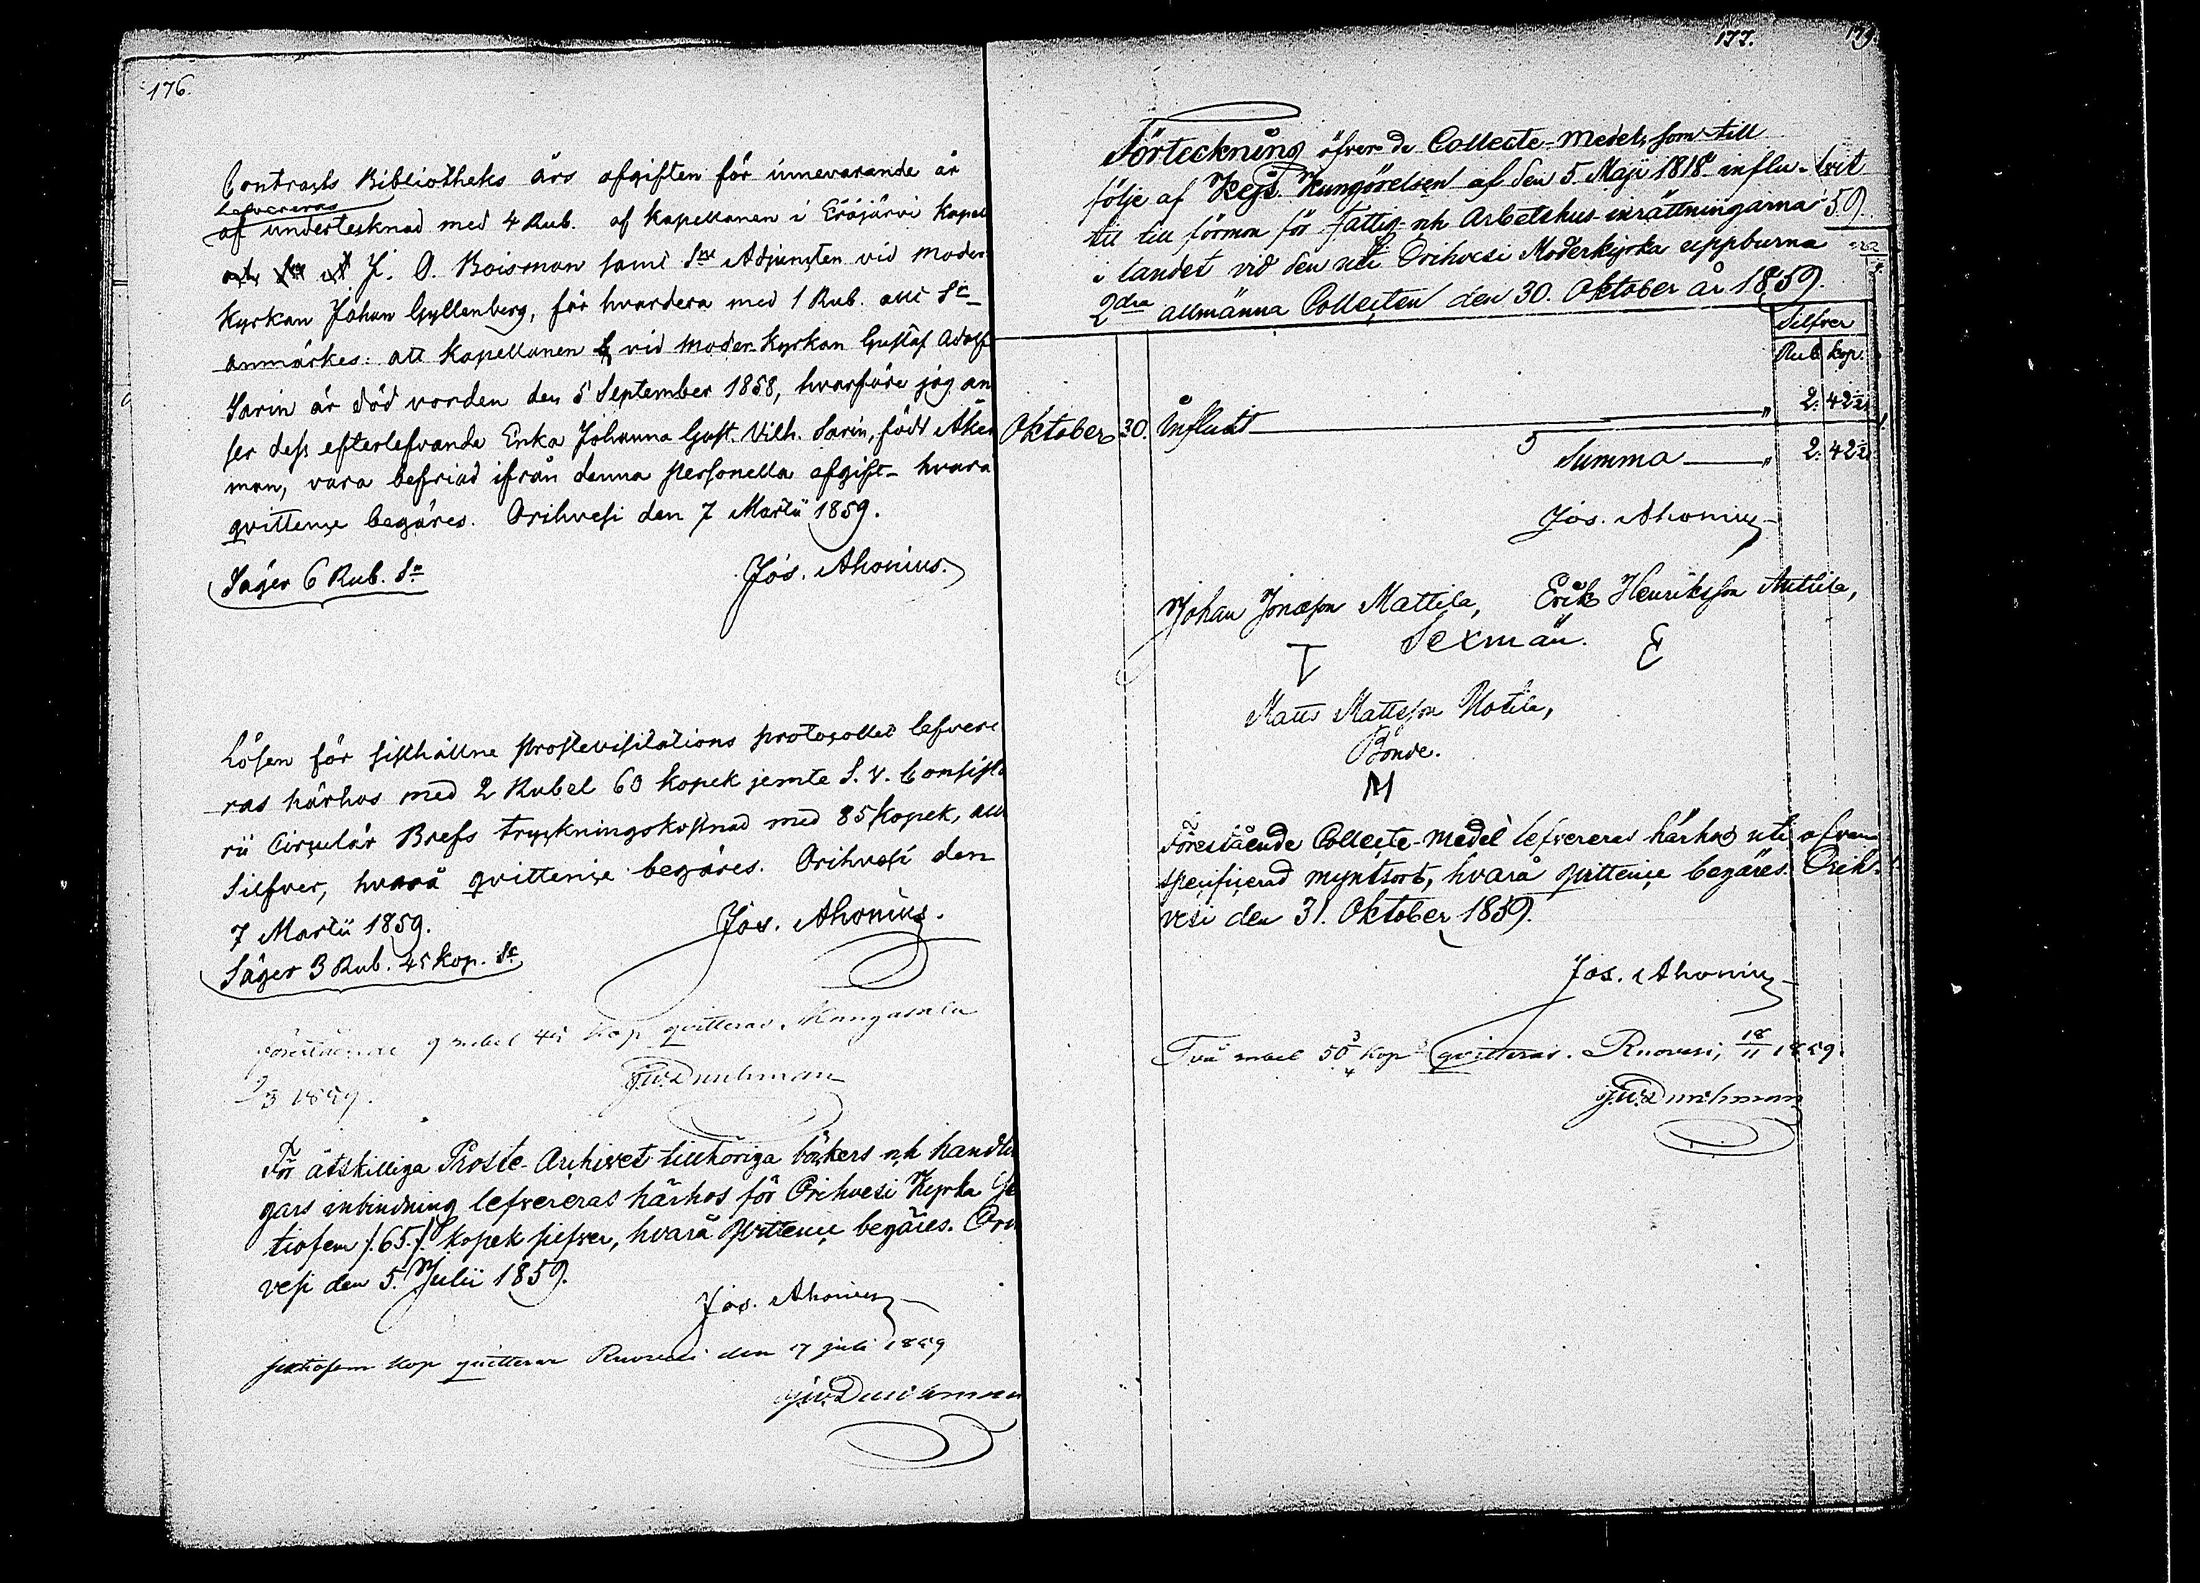 176.
Contracts Bibliotheks års afgiften för innevarande år
Lefvereras
af undertecknad med 4 Rub. af kapellanen i Eräjärvi Kapell
J. A. Boisman samt Sne Adjuncten vid moder
Kyrkan Johan Gyllenberg, för hvardera med 1 Rub. allt Sr
anmärkes: att kapellanen vid moder Kyrkan Gustaf Adolf
Sarin är död vorden den 5 September 1858, hvarföre jag an
ser dess efterlefvande Enka Johanna Gust. Vilh. Sarin, född Åker
man, vara befriad ifrån denna personella afgift- hvarå
qvittence begäres. Orihvesi den 7 Martii 1859.
Säger 6 Rub. Sr
Jos. Ahonius.
Lösen för sisthållne prostevisitations protocollet lefvere
ras härhos med 2 Rubel 60 kopek jemte S. V. Consisto
rii Circulär Brefs tryckningskostnad med 85 kopek, allt
Silfver, hvarå qvittence begäres. Orihvesi den
7 Martii 1859.
Jos. Ahonius.
Säger 3 Rub. 45 kop. Sr
Förestående 9 rubel 45 kop qvitteras. Kangasala
9/3 1859.
Dunchman
För åtskilliga Proste-Archivet tillhöriga böckers och handlin
gars inbindning lefvereras härhos för Orihvesi Kyrka Se
tiofem /.65./. kopek silfver, hvarå Qvittence begäres. Ori
vesi den 5. Julii 1859.
Jos. Ahonius
sextiofem kop qvitteras Ruovesi den 17 juli 1859
Dunchman
177.
179.
Förteckning öfver de Collecte-Medel, som till
följe af Kejs. Kungörelsen af den 5. Maji 1818 influ-
tit till förmon för Fattig- och Arbetshus-inrättningarna
i landet vid den uti Orihvesi Moderkyrka uppburna
2dra allmänna Collecten den 30. Oktober år 1859.
59.
Silfver
Rub. kop.
Oktober 30. Influtit " 2. 42 1/2
Summa " 2. 42 1/2
Jos. Ahonius
Johan Jonasson Mattila, Erik Henriksson Anttila,
Sexmän.
Matts Mattsson Uotila,
Bonde.
M
Förestående Collecte-medel lefvereras härhos uti ofvan
specificerad myntsort, hvarå Qvittence begäres. Orih-
vesi den 31. Oktober 1859.
Jos. Ahonius
Två rubel 50 3/4 kop qvitteras. Ruovesi, 18/11 1859.
Dunchman